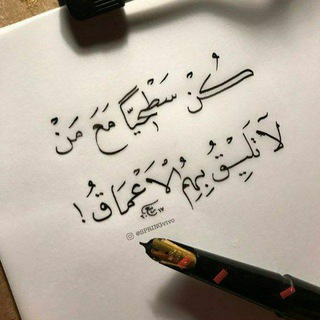 كُنْ سَطْحِيًّا مَعَ مَنْ
لَا تَلِيْقُ بِهِمُ الْأَعْمَاقُ!
@SPRINGvivo